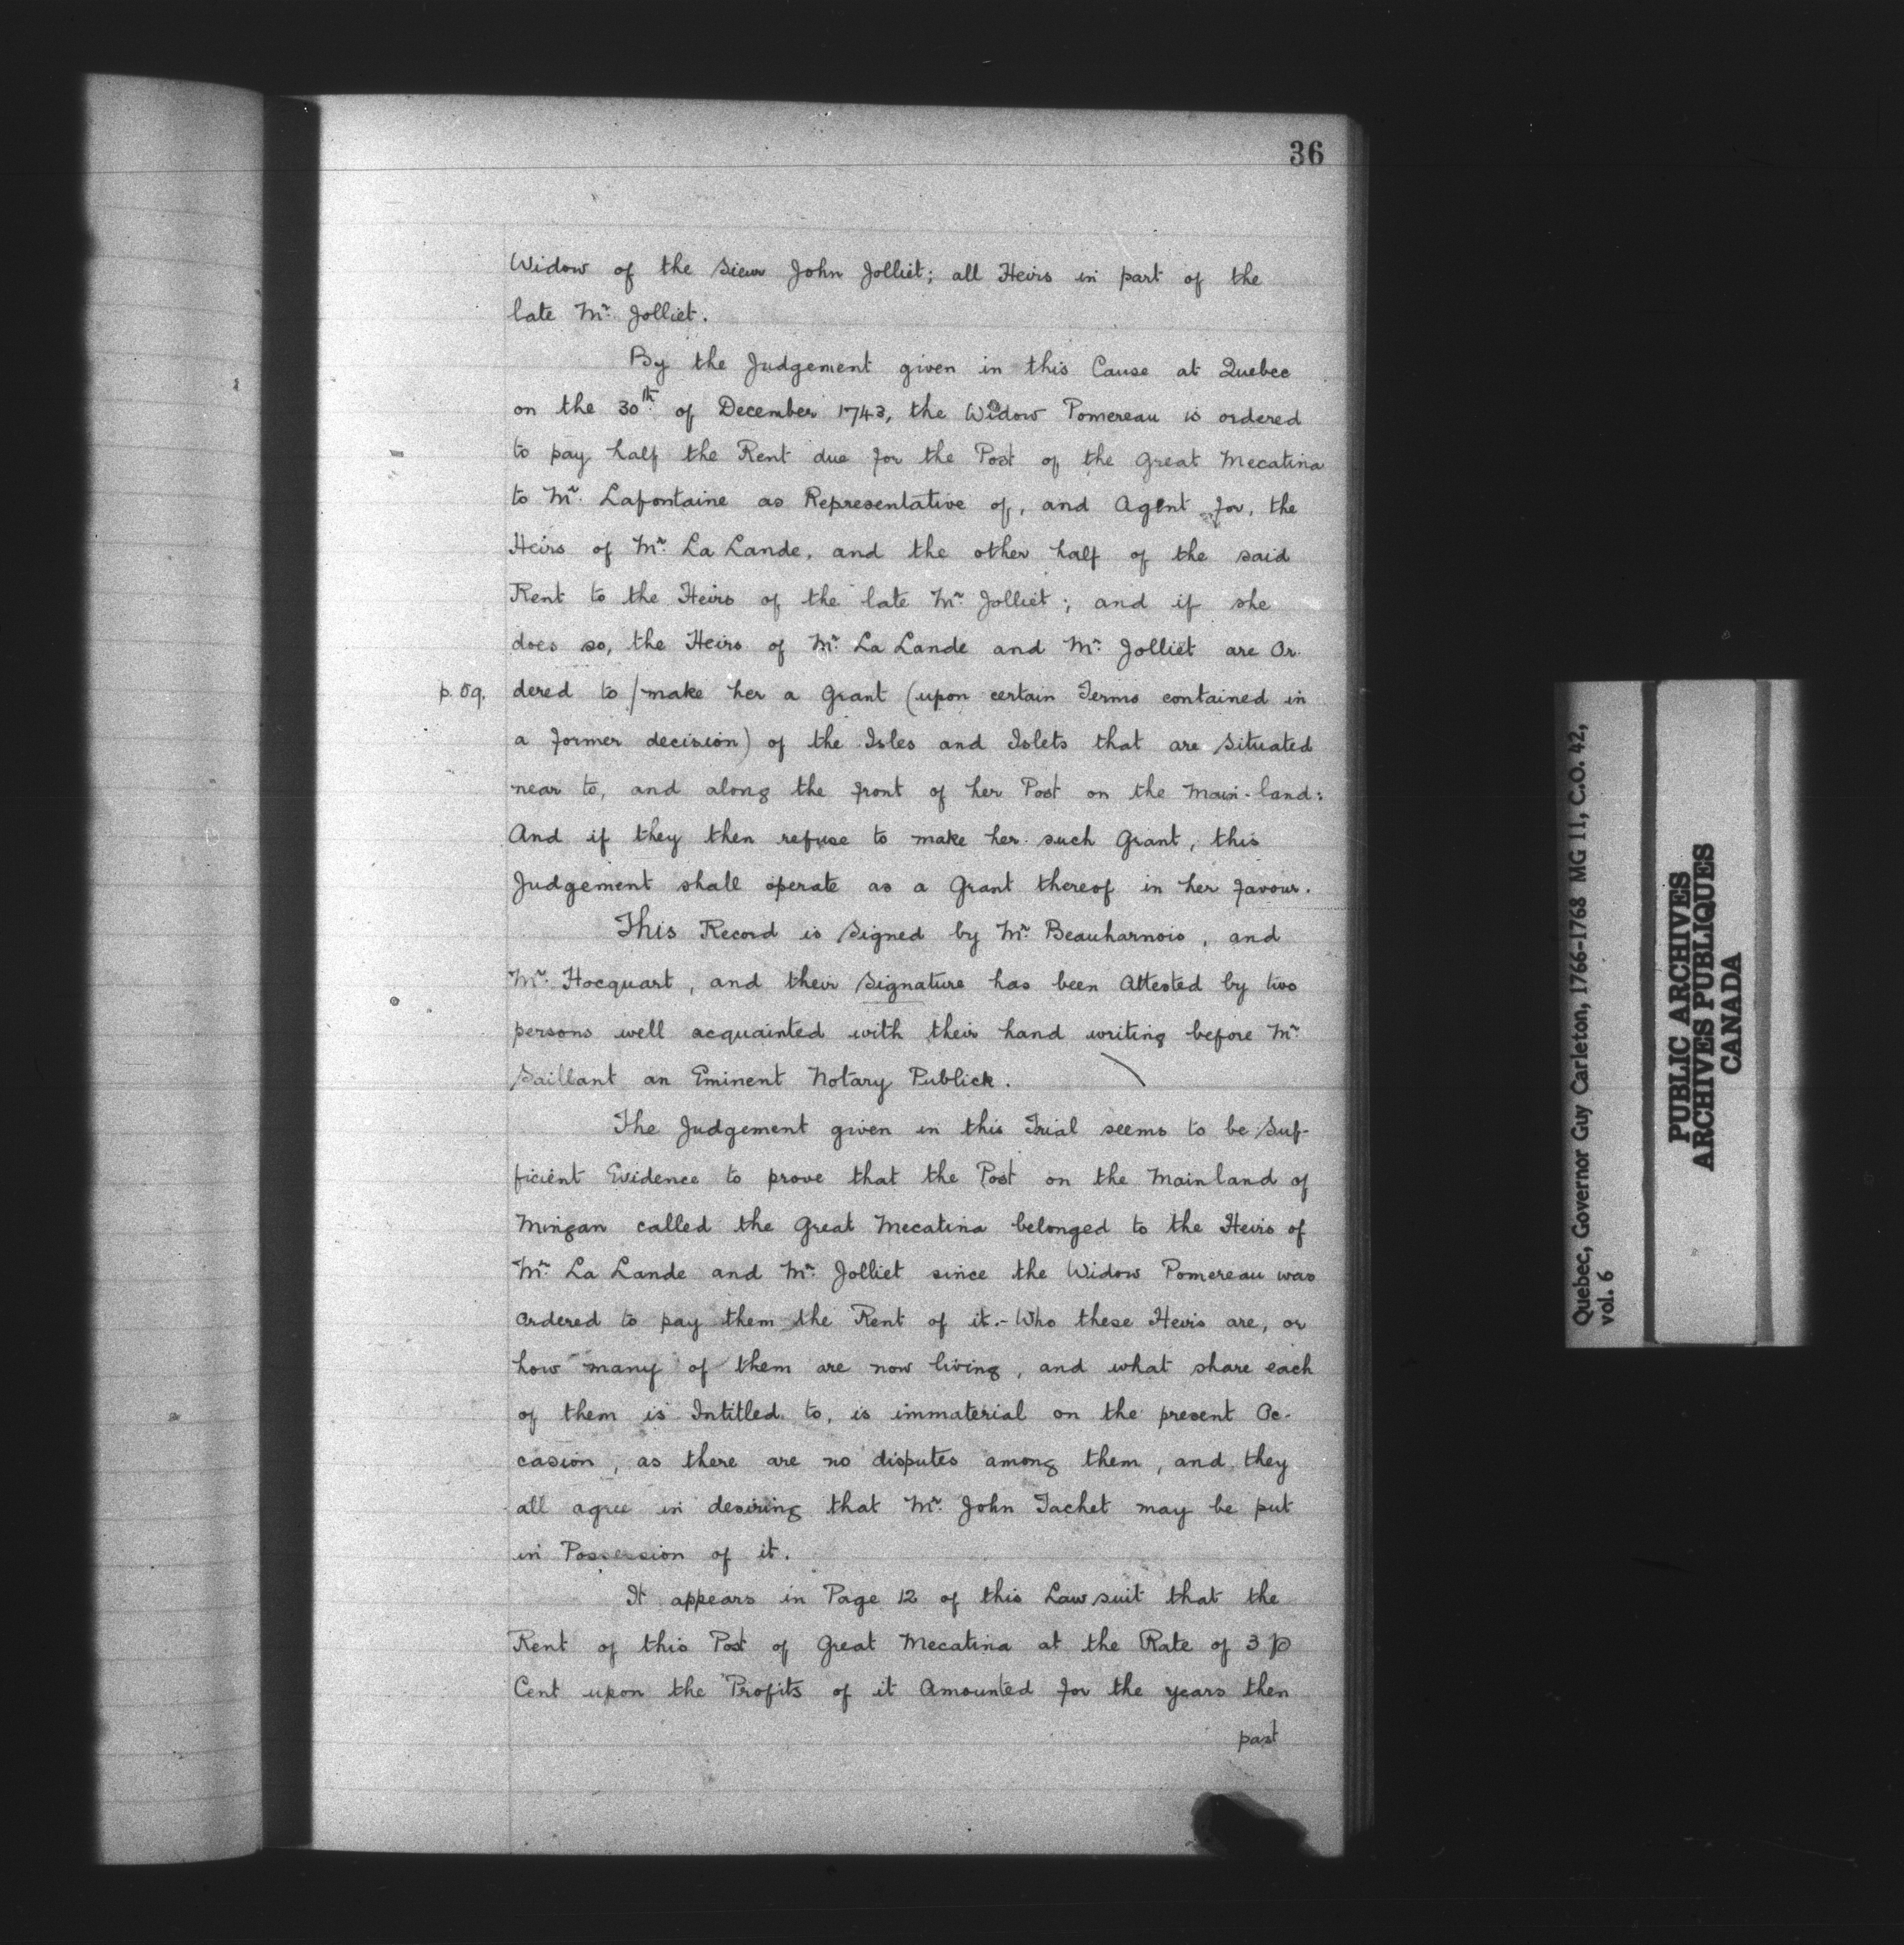 36
Widow of the Sieur John Jolliet; all Heirs in part of the
late Mr. Jolliet.
By the Judgement given in this Cause at Quebec
on the 30th. of December 1743, the Widow Pomereau is ordered
to pay half the Rent due for the Post of the Great Mecatina
to Mr. Lafontaine as Representative of, and Agent for, the
Heirs of Mr. La Lande, and the other half of the said
Rent to the Heirs of the late Mr. Jolliet; and if she
does so, the Heirs of Mr. La Lande and Mr. Jolliet are Or-
p. 59. dered to / make her a Grant (upon certain Terms contained in
a former decision) of the Isles and Islets that are Situated
near to, and along the front of her Post on the Main-land:
And if they then refuse to make her such Grant, this
Judgement shall operate as a Grant thereof in her favour.
This Record is Signed by Mr. Beauharnois, and
Mr. Hocquart, and their Signature has been Attested by two
persons well acquainted with their hand writing before Mr.
Saillant an Eminent Notary Publick.
The Judgement given in this Trial seems to be Suf-
ficient Evidence to prove that the Post on the Mainland of
Mingan called the Great Mecatina belonged to the Heirs of
Mr. La Lande and Mr. Jolliet since the Widow Pomereau was
Ordered to pay them the Rent of it.- Who these Heirs are, or
how many of them are now living, and what share each
of them is Intitled to, is immaterial on the present Oc-
casion, as there are no disputes among them, and they
all agree in desiring that Mr. John Tachet may be put
in Possession of it.
It appears in Page 12 of this Law suit that the
Rent of this Post of Great Mecatina at the Rate of 3 p
Cent upon the Profits of it Amounted for the years then
past
Quebec, Governor Guy Carleton, 1766-1768 MG 11, C.O. 42,
vol. 6
PUBLIC ARCHIVES
ARCHIVES PUBLIQUES
CANADA